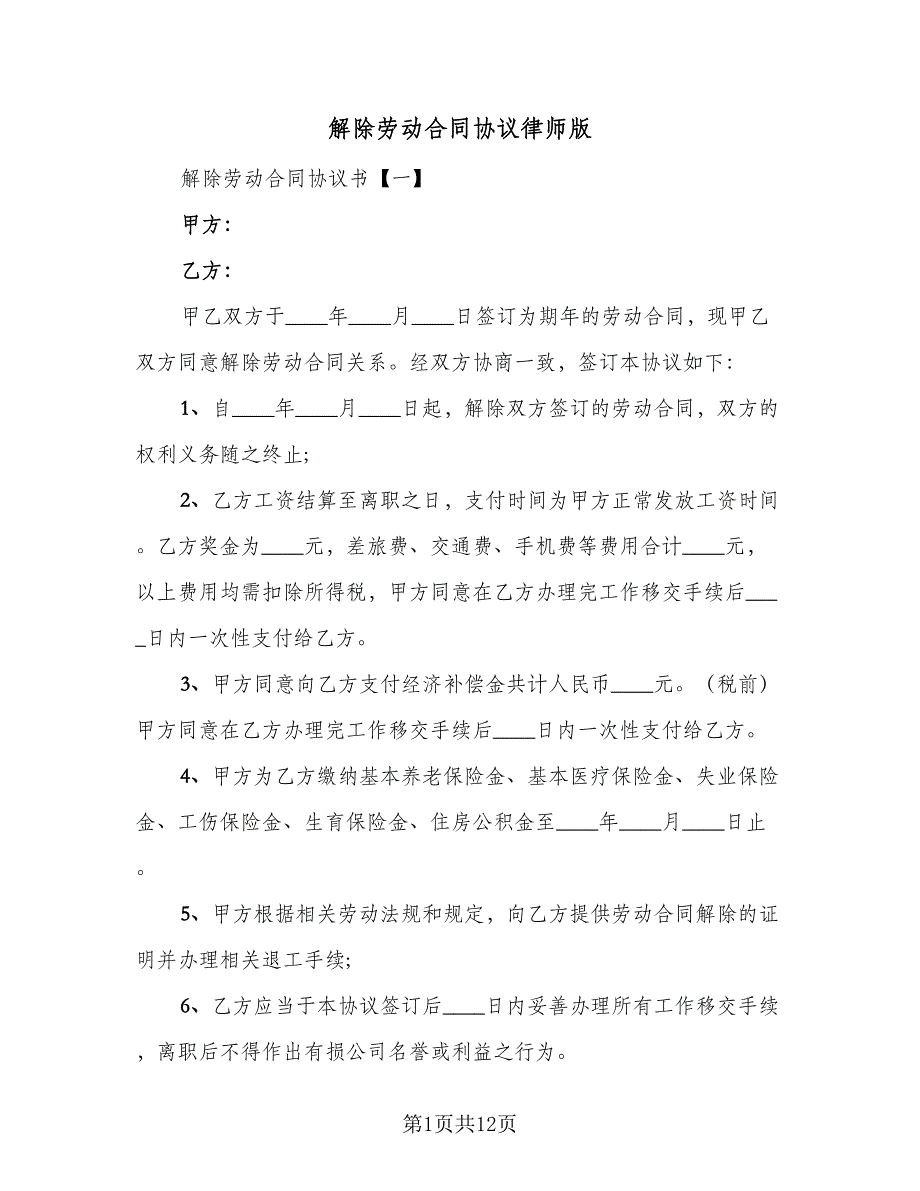 解除劳动合同协议律师版
解除劳动合同协议书【一】
甲方：
乙方：
甲乙双方于____年____月____日签订为期年的劳动合同，现甲乙
双方同意解除劳动合同关系。经双方协商一致，签订本协议如下：
1、自____年____月____日起，解除双方签订的劳动合同，双方的
权利义务随之终止;
2、乙方工资结算至离职之日，支付时间为甲方正常发放工资时间
。乙方奖金为____元，差旅费、交通费、手机费等费用合计____元，
以上费用均需扣除所得税，甲方同意在乙方办理完工作移交手续后___
_日内一次性支付给乙方。
3、甲方同意向乙方支付经济补偿金共计人民币____元。（税前）
甲方同意在乙方办理完工作移交手续后____日内一次性支付给乙方。
4、甲方为乙方缴纳基本养老保险金、基本医疗保险金、失业保险
金、工伤保险金、生育保险金、住房公积金至____年____月____日止
。
5、甲方根据相关劳动法规和规定，向乙方提供劳动合同解除的证
明并办理相关退工手续;
6、乙方应当于本协议签订后____日内妥善办理所有工作移交手续
，离职后不得作出有损公司名誉或利益之行为。
第1页共12页